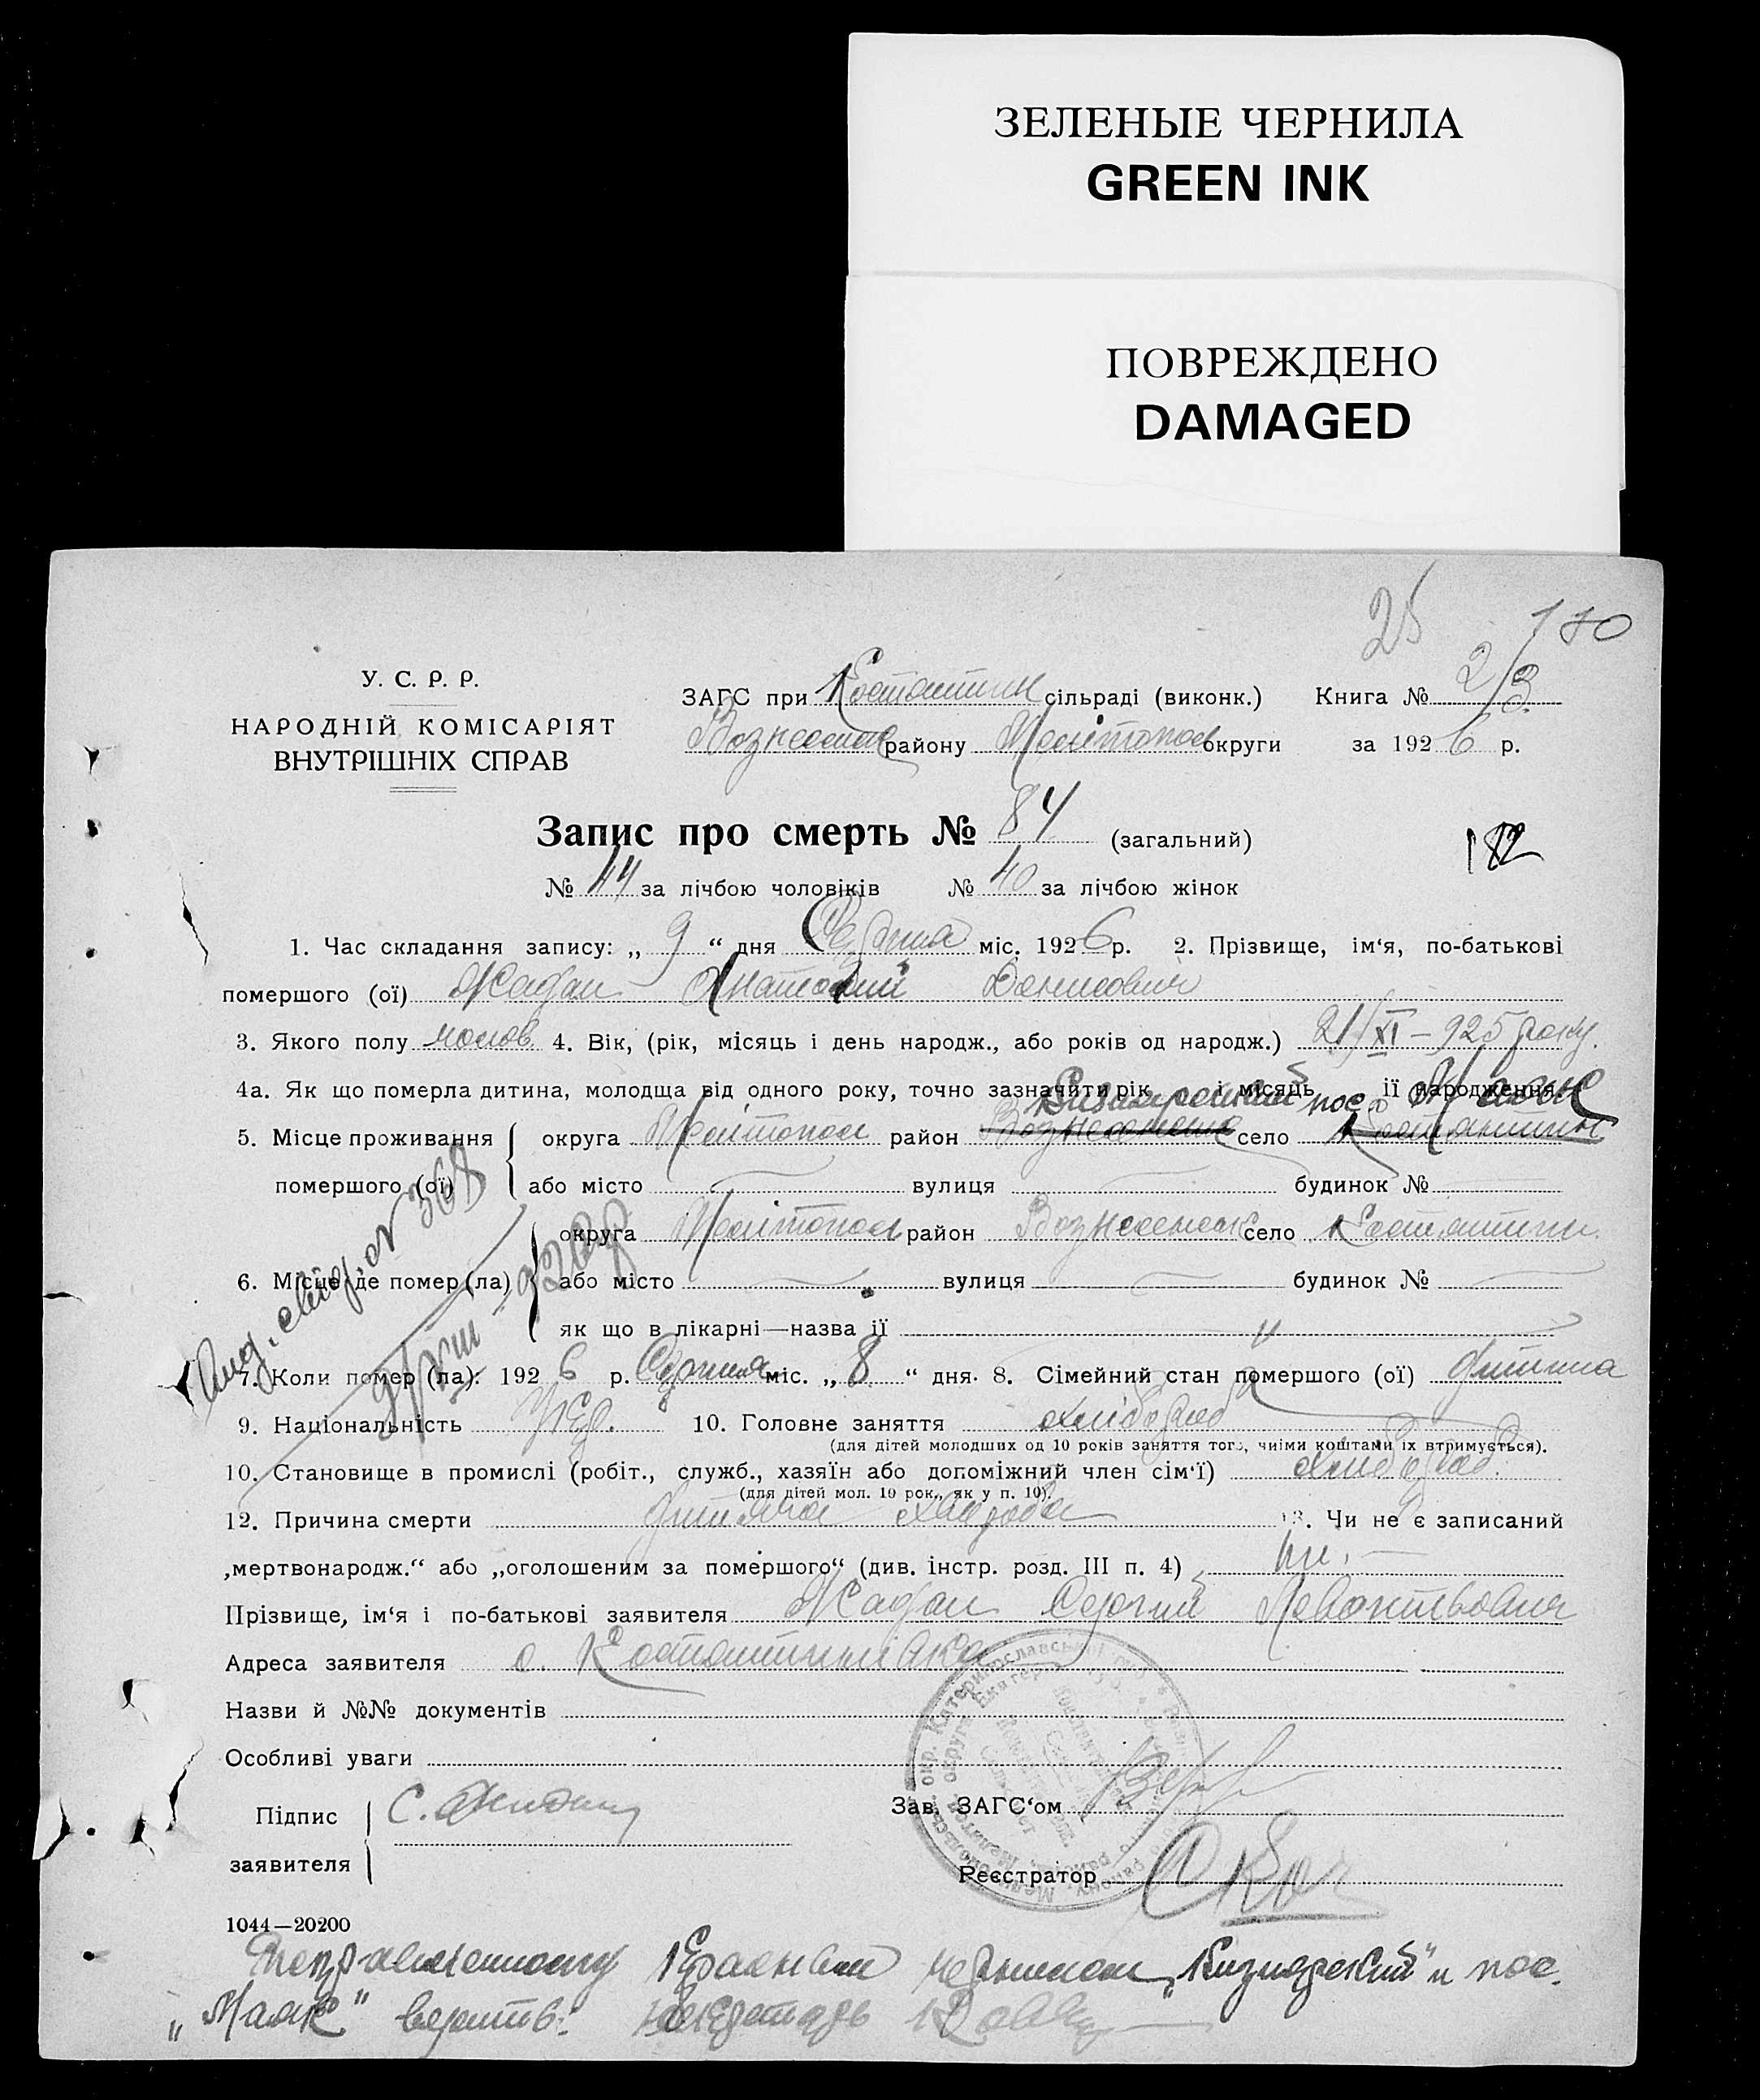 ЗЕЛЕНЫЕ ЧЕРНИЛА
GREEN INK
ПОВРЕЖДЕНО
DAMAGED
25 170
У. С. Р. Р.
НАРОДНІЙ КОМІСАРІЯТ
ВНУТРІШНІХ СПРАВ
ЗАГС при Костянтин сільраді (виконк.) Книга № 2/3
Вознесенск району Мелітопол округи за 1926 р.
Запис про смерть № 84 (загальний)
182
№ 44 за лічбою чоловіків № 40 за лічбою жінок
1. Час складання запису: „ 9 “ дня Серпня міс. 1926 р. 2. Прізвище, ім‘я, по-батькові
помершого (ої) Жадан Анатолій Денисович
3. Якого полу чолов. 4. Вік, (рік, місяць і день народж., або років од народж.) 21/XI – 925 року.
4а. Як що померла дитина, молодща від одного року, точно зазначити рік, і місяць її народження
Кизиярский пос. Маяк
5. Місце проживання округа Мелітопол район Вознесенск село Костянтин
помершого (ої) або місто вулиця будинок №
округа Мелітопол район Вознесенск село Костянтин.
6. Місце де помер (ла) або місто вулиця будинок №
як що в лікарні—назва її
7. Коли помер (ла): 1926 р. Серпня міс. „ 8 “ дня. 8. Сімейний стан помершого (ої) дитина
9. Національність Укр. 10. Головне заняття хлібороб
(для дітей молодших од 10 років заняття того, чиїми коштами їх втримується).
10. Становище в промислі (робіт., служб., хазяїн або допоміжний член сім‘ї) хлібороб.
(для дітей мол. 10 рок., як у п. 10).
12. Причина смерти дитяча хвороба 13. Чи не є записаний
„мертвонародж.“ або „оголошеним за помершого“ (див. інстр. розд. III п. 4) ні.
Прізвище, ім‘я і по-батькові заявителя Жадан Сергій
Адреса заявителя с. Костянтинівка
Назви й №№ документів
Особливі уваги
Підпис заявителя С.
Зав. ЗАГС‘ом
Реєстратор
1044—20200
красным чернилом „Кизиярский“ и пос.
„Маяк“ верить. Секретарь
№ 368